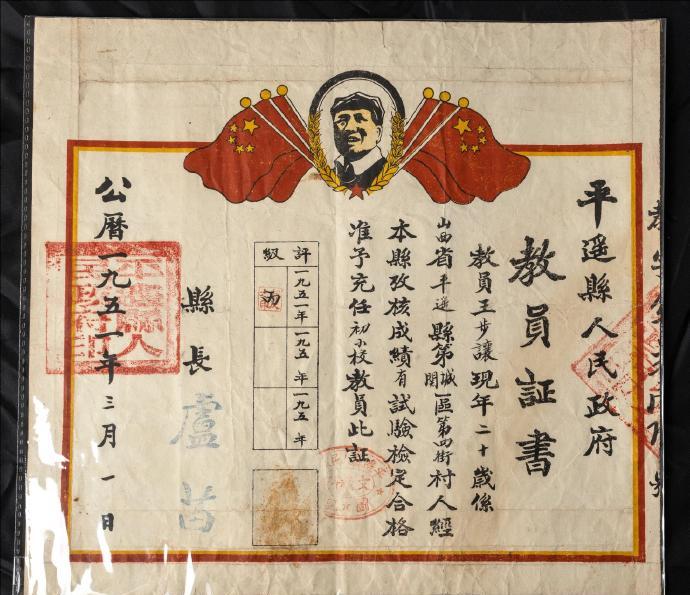 平遥縣人民政府
教員証書
教員王步讓現年二十歲係
山西省平遥縣第城関區第四街村人經
本縣攷核成績有試驗檢定合格
准予充任初小校教員此証
評級
一九五一年
丙
一九五 年
一九五 年
縣長
盧苗
公曆一九五一年三月一日